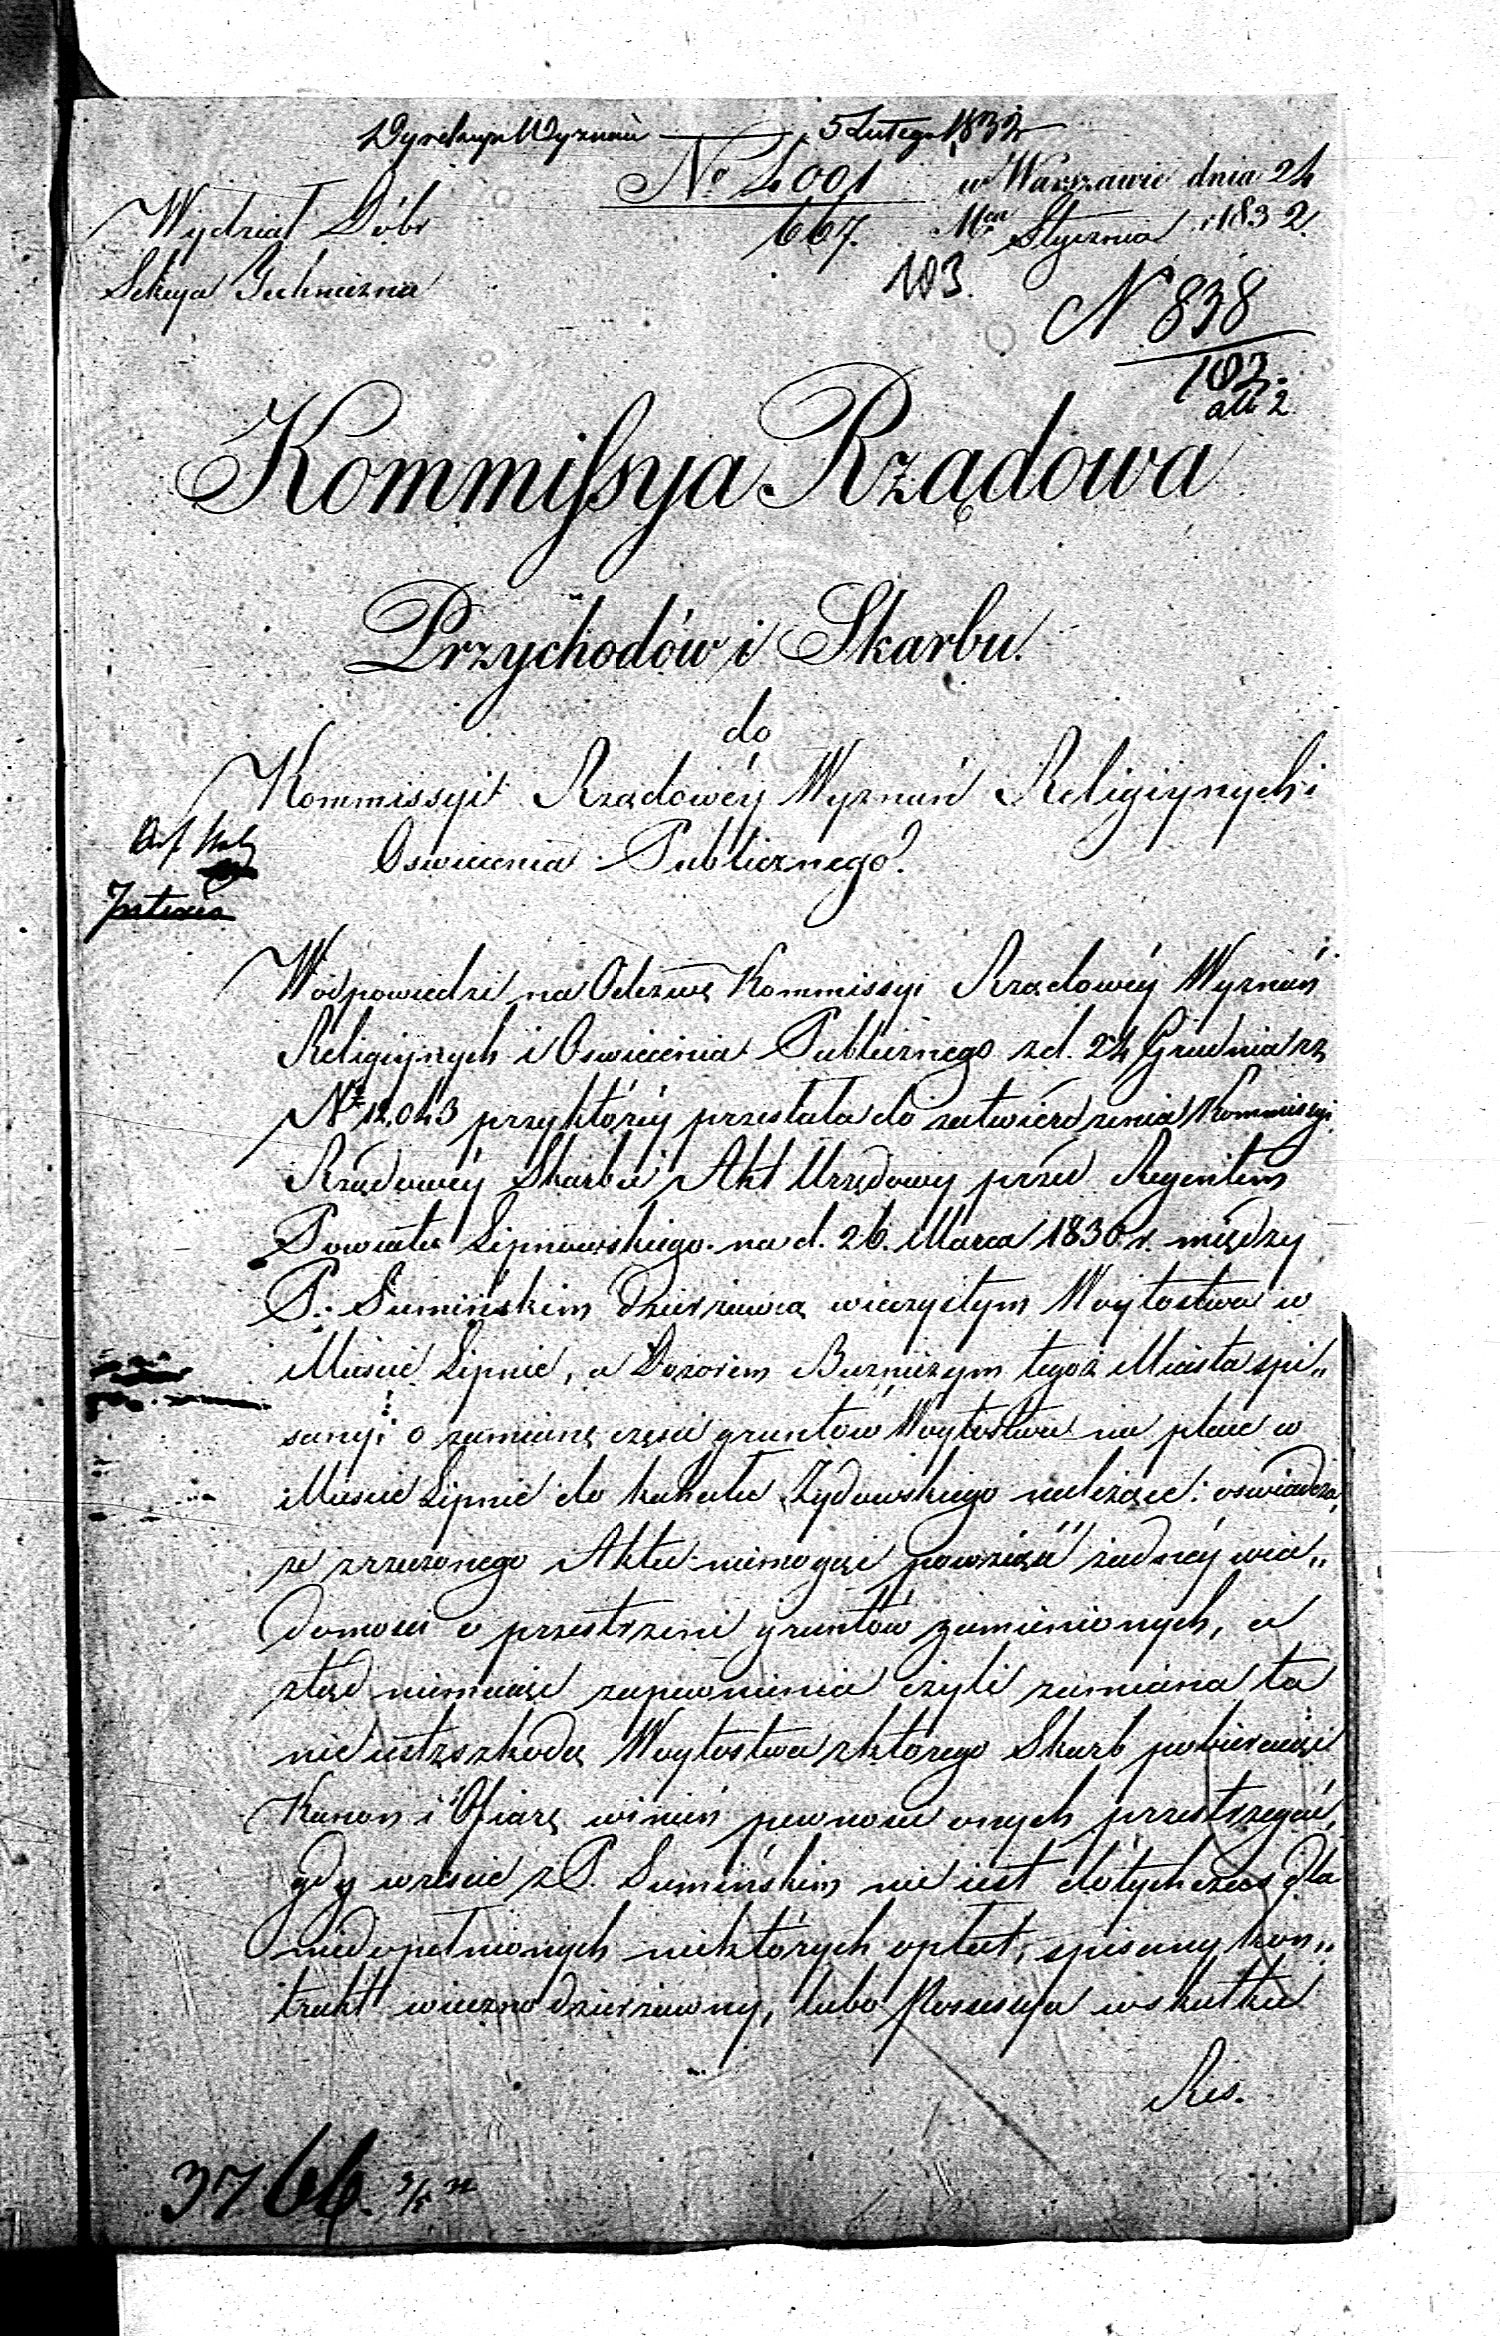 Dyrekcya Wyznań 5 Lutego 1832
No 4001 w Warszawie dnia 24
Wydział Dóbr 667. Mca Stycznia 1832.
Sekcya Techniczna 103.
N 838
103.
all 2.
Kommissya Rządowa
Przychodów i Skarbu.
do
Kommissyi Rządowéy Wyznań Religiynych i
Oswiecenia Publicznego.
W odpowiedzi na Odezwę Kommissyi Rządowéy Wyznań
Religiynych i Oswiecenia Publicznego z d. 24 Grudnia rz
No 12,043 przy któréy przesłała do zatwierdzenia Kommissyi
Rządowéy Skarbu Akt Urzędowy przed Regentem
Powiatu Lipnowskiego na d. 26. Marca 1830 r. między
P. Sumińskim dzierzawcą wieczystym Woytostwa w
Miescie Lipnie, a Dozorem Bużniczym tegoż Miasta spi„
sany; o zamianę częsci gruntów Woytostwa na place w
Miescie Lipnie do kahału Żydowskiego należące: oswiadcza,
ze zrzeczonego Aktu niemogąc powziąść żadnéy wia„
domosci o przestrzeni gruntów zamienionych, a
ztąd niemaiąc zapewnienia czyli zamiana ta
nie iest z szkodą Woytostwa z którego Skarb pobieraiąc
Kanon i Ofiarę winien pewnosci onych przestrzegać,
gdy wrescie z P. Sumińskim nie iest dotychczas dla
niedopełnionych niektórych opłat, spisany kon„
trakt wieczno dzierzawny, lubo Possessya w skutku
Res.
3766.